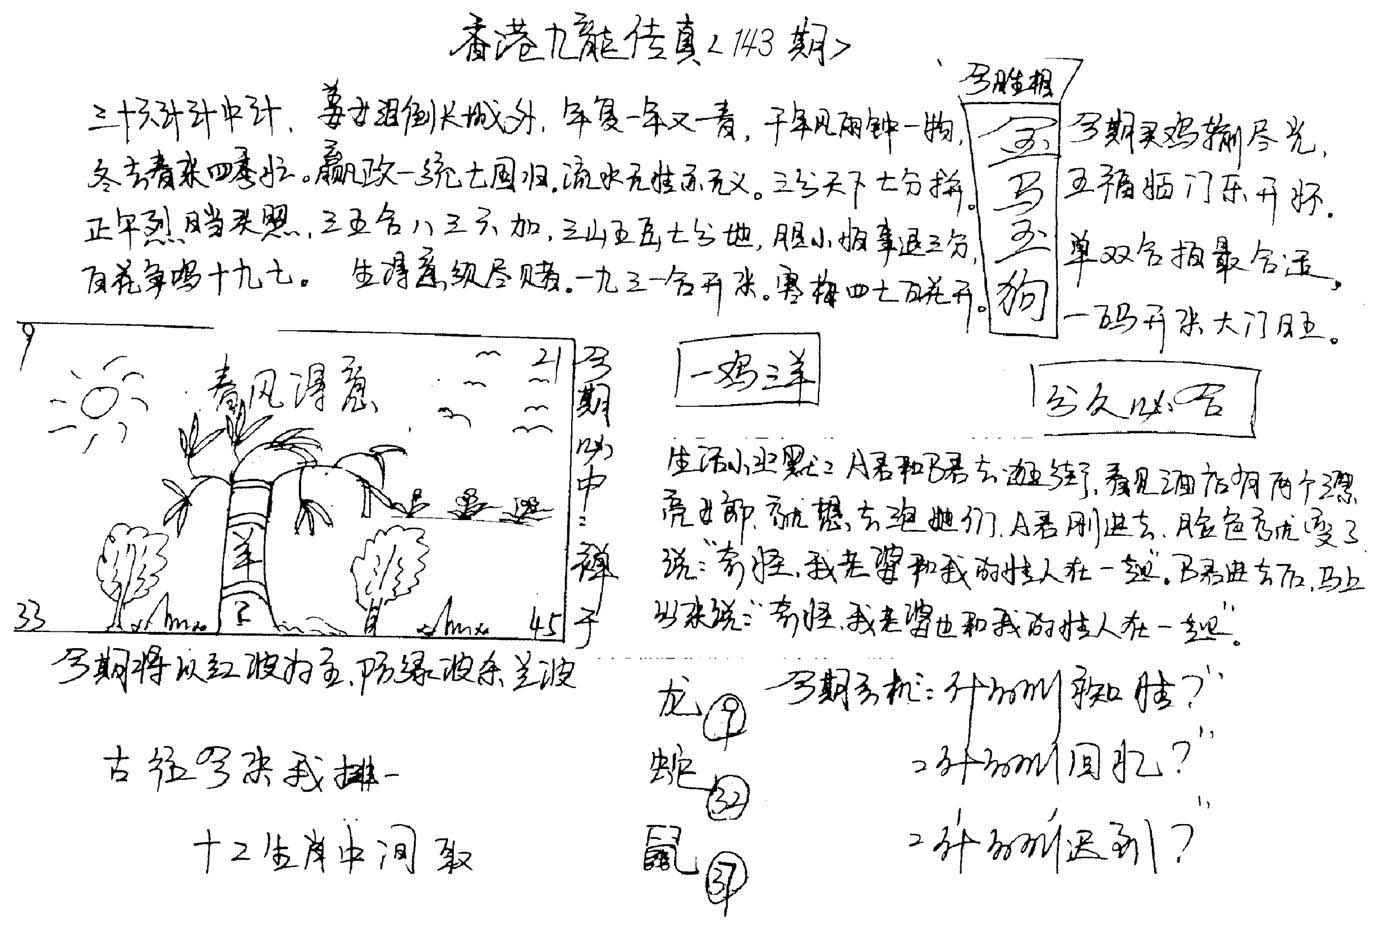 香港九龍传真<143期>
三十六计计中计,姜女泪倒长城外,年复一年又一春,千年风雨钟一物,
冬去春来四季忙。嬴政一统七国归。流水无情亦无义。三分天下七分拼。
正午烈日当头照,三五合八三六加,三山五岳七分地,胆小怕事退三分,
百花争鸣十九七。 生得意须尽赌。一九三一合开来。寒梅四七百花开。
今胜相
金
马
玉
狗
今期买鸡输尽光,
五福临门乐开怀.
单双合拍最合适,
一码开来大门旺。
9
21
春风得意
羊
33
45
今期必中:禅于
一鸡三羊
分久必合
生活小幽默: A君和B君去逛街,看见酒店有两个漂
亮女郎,就想去泡她们,A君刚进去,脸色就变了
说:"奇怪,我老婆和我的情人在一起"。B君进去后,马上
出来说:"奇怪,我老婆也和我的情人在一起"。
今期将以红波为主,防绿波杀兰波
龙 9
蛇 32
鼠 37
今期玄机: 什么叫知?"
么叫回忆?"
么叫迟到?"
古径今来我排一
十二生肖中间取